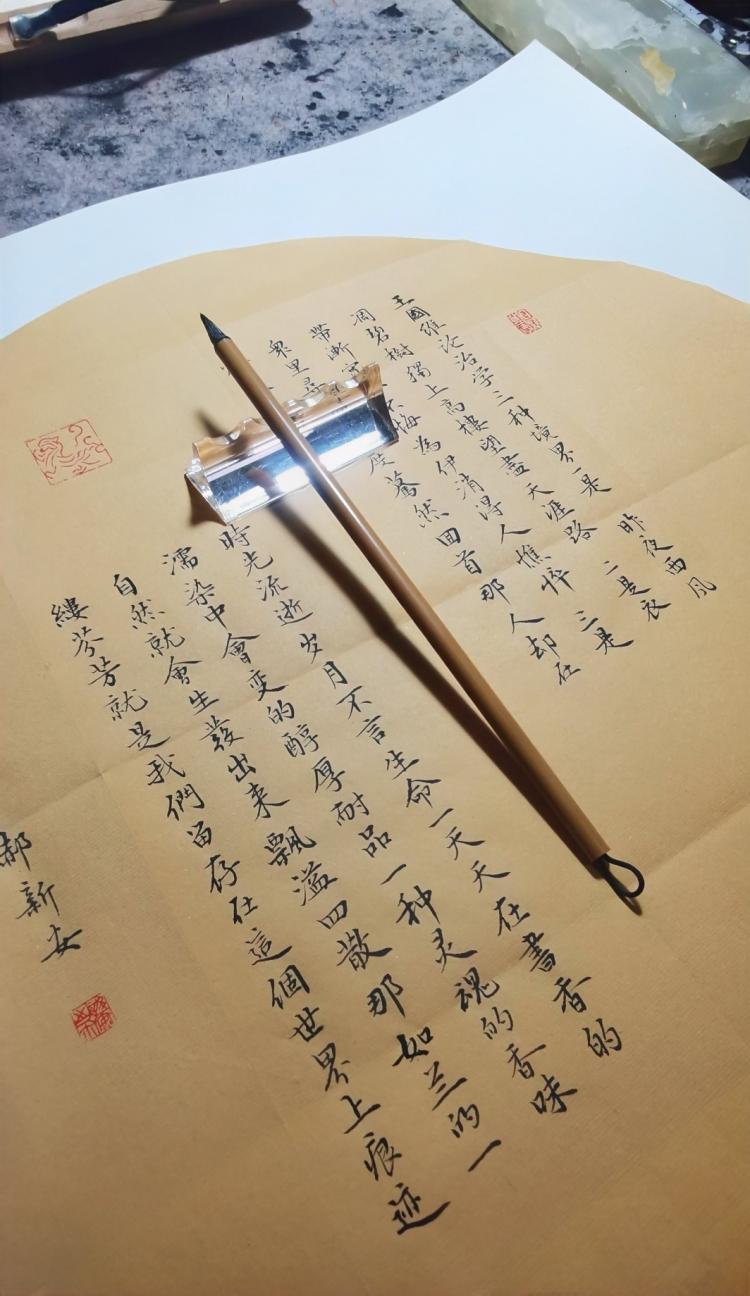 王國維论治学三种境界一是昨夜西风
凋碧樹獨上高樓望盡天涯路二是衣
帶漸寬不悔為伊消得人憔悴三是
眾里尋度驀然回首那人却在
時光流逝岁月不言生命一天天在書香的
濡染中會变的醇厚耐品一种灵魂的香味
自然就會生發出来飄溢四散那如兰的一
縷芬芳就是我們留存在這個世界上痕迹
郝新安